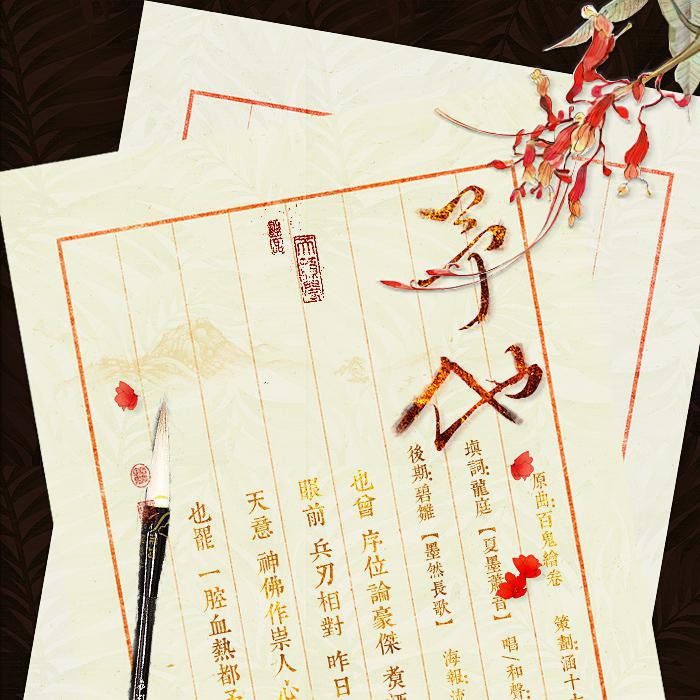 予他
原曲:百鬼繪卷 策劃:涵十
填詞:龍庭【夏墨蕭音】 唱/和聲:
後期:碧雛【墨然長歌】 海報:
也曾 序位論豪傑 煮
眼前 兵刃相對 昨日
天意 神佛作祟人心
也罷 一腔血熱都予